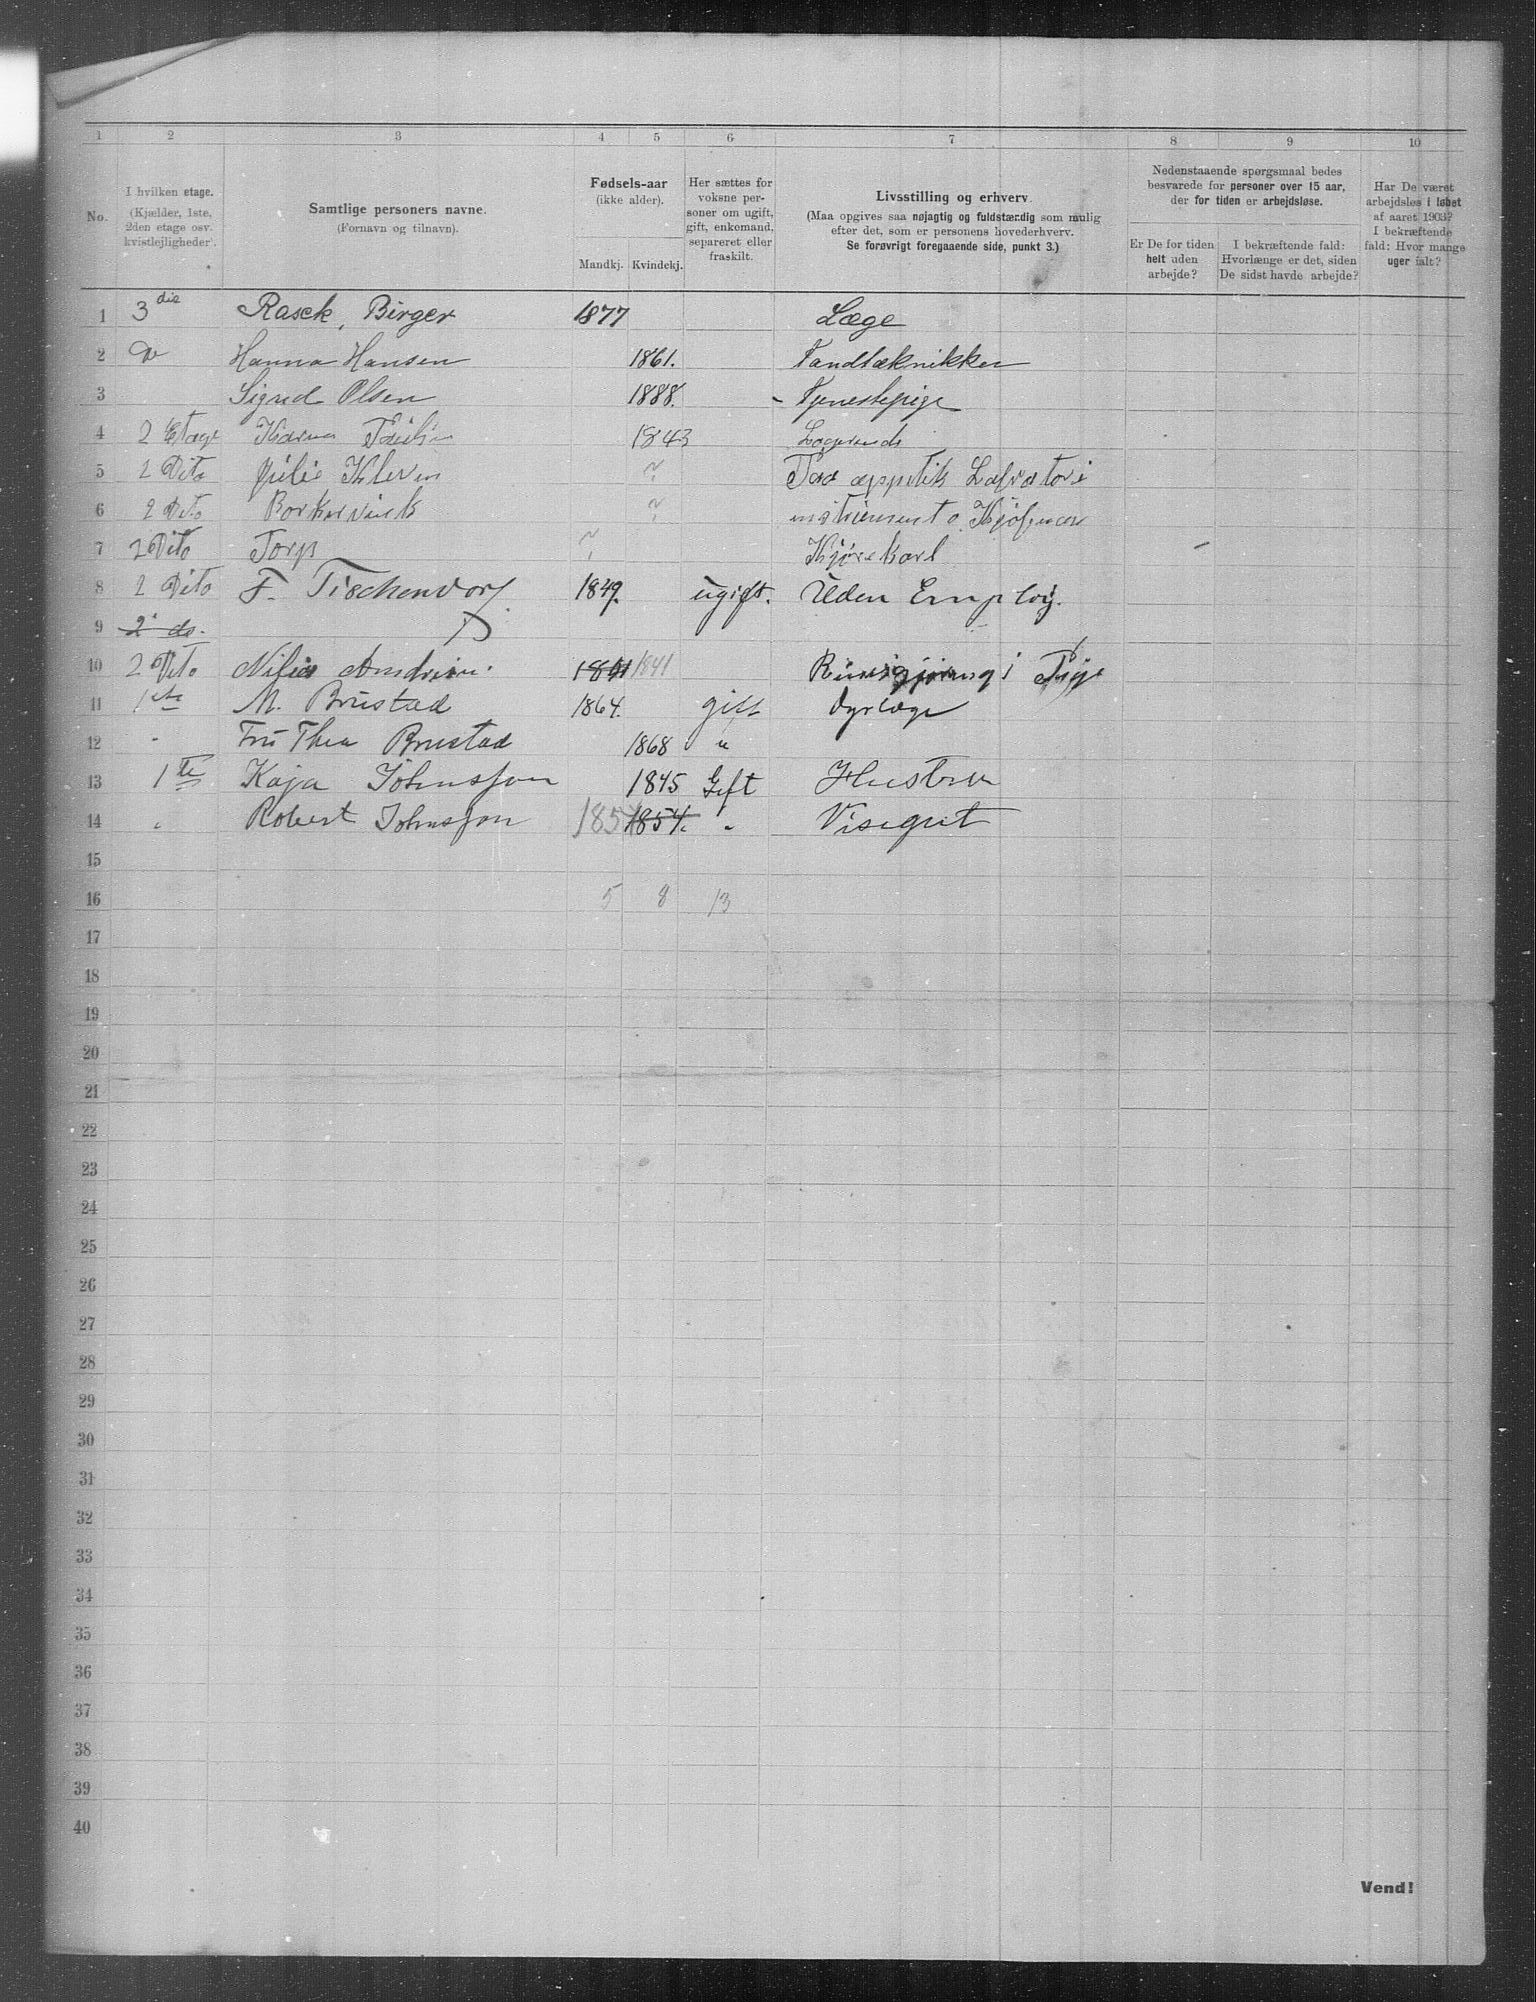 1 2 3 4 5 6 7 8 9 10
No.
I hvilken etage.
(Kjælder, 1ste,
2den etage osv.
kvistlejligheder).
Samtlige personers navne.
(Fornavn og tilnavn).
Fødsels-aar
(ikke alder).
Mandkj. Kvindekj.
Her sættes for
voksne per-
soner om ugift,
gift, enkemand,
separeret eller
fraskilt.
Livsstilling og erhverv.
(Maa opgives saa nøjagtig og fuldstændig som mulig
efter det, som er personens hovederhverv.
Se forøvrigt foregaaende side, punkt 3.)
Nedenstaaende spørgsmaal bedes
besvarede for personer over 15 aar,
der for tiden er arbejdsløse.
Er De for tiden
helt uden
arbejde?
I bekræftende fald:
Hvorlænge er det, siden
De sidst havde arbejde?
Har De været
arbejdsløs i løbet
af aaret 1903?
I bekræftende
fald: Hvor mange
uger ialt?
1 3die Rasck, Birger 1877 Læge
2 Do Hanna Hansen 1861. Tandtæknikker
3 Sigrid Olsen 1888. - Tjenestepige
4 2 Etage 1843
5 2 Dito Julie Kleven ~
6 2 Dito ~
7 2 Dito Torp ~ Kjørekarl -
8 2 Dito F. Tischendorf 1849. ugift. Uden Emploÿ.
9 2. do.
10 2 Dito 1841 1841
11 1ste M. Brustad 1864. gift Dyrlæge
12 " Fru Thea Brustad 1868 "
13 1ste Kaja Johnsson 1845 Gift Hustru
14 " Robert Johnsson 1854 1854. " Visegut
15
16 5 8 13
17
18
19
20
21
22
23
24
25
26
27
28
29
30
31
32
33
34
35
36
37
38
39
40
Vend!